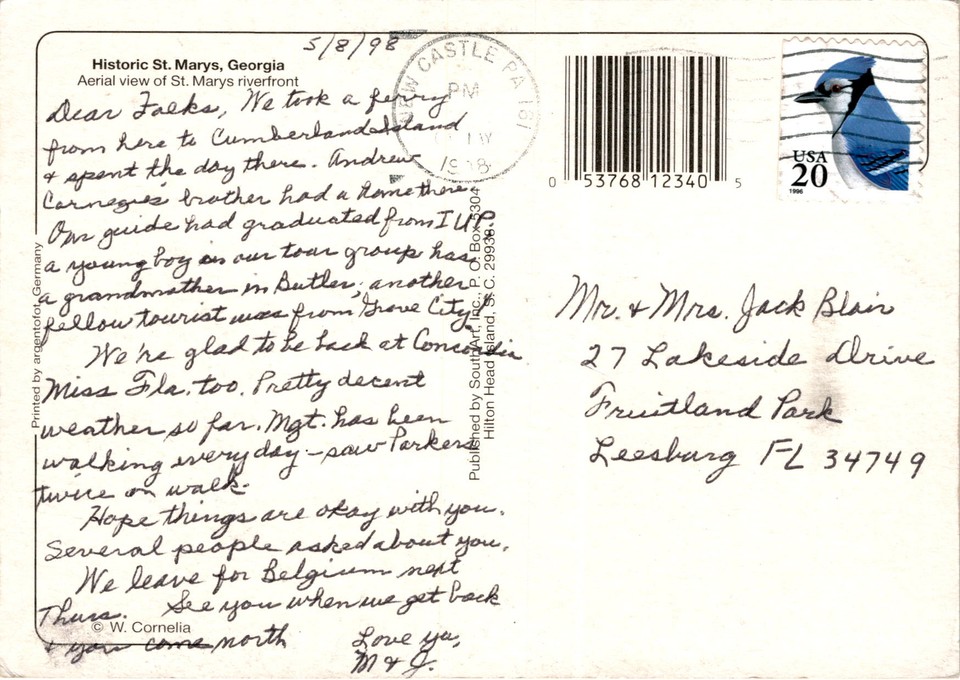 5/8/98
Historic St. Marys, Georgia
Aerial view of St. Marys riverfront
Dear Folks, We took a ferry
from here to Cumberland Island
& spent the day there. Andrew
Carnegie's brother had a home there.
Our guide had graduated from IUP.
a young boy in our tour group has
a grandmother in Butler; another
fellow tourist was from Grove City.
We're glad to be back at Concordia
Miss Fla. too. Pretty decent
weather so far. Mgt. has been
walking every day - saw Parkers
twice on walk.
Hope things are okay with you.
Several people asked about you.
We leave for Belgium next
Thurs. See you when we get back
& you come north
Love ya,
M & J.
© W. Cornelia
Printed by argentofot, Germany
Published by SouthArt, Inc., P. O. Box 5304
Hilton Head Island, S.C. 29938
NEW CASTLE PA 161
PM
1998
0 53768 12340 5
USA
20
1996
Mr. & Mrs. Jack Blair
27 Lakeside Drive
Fruitland Park
Leesburg FL 34749